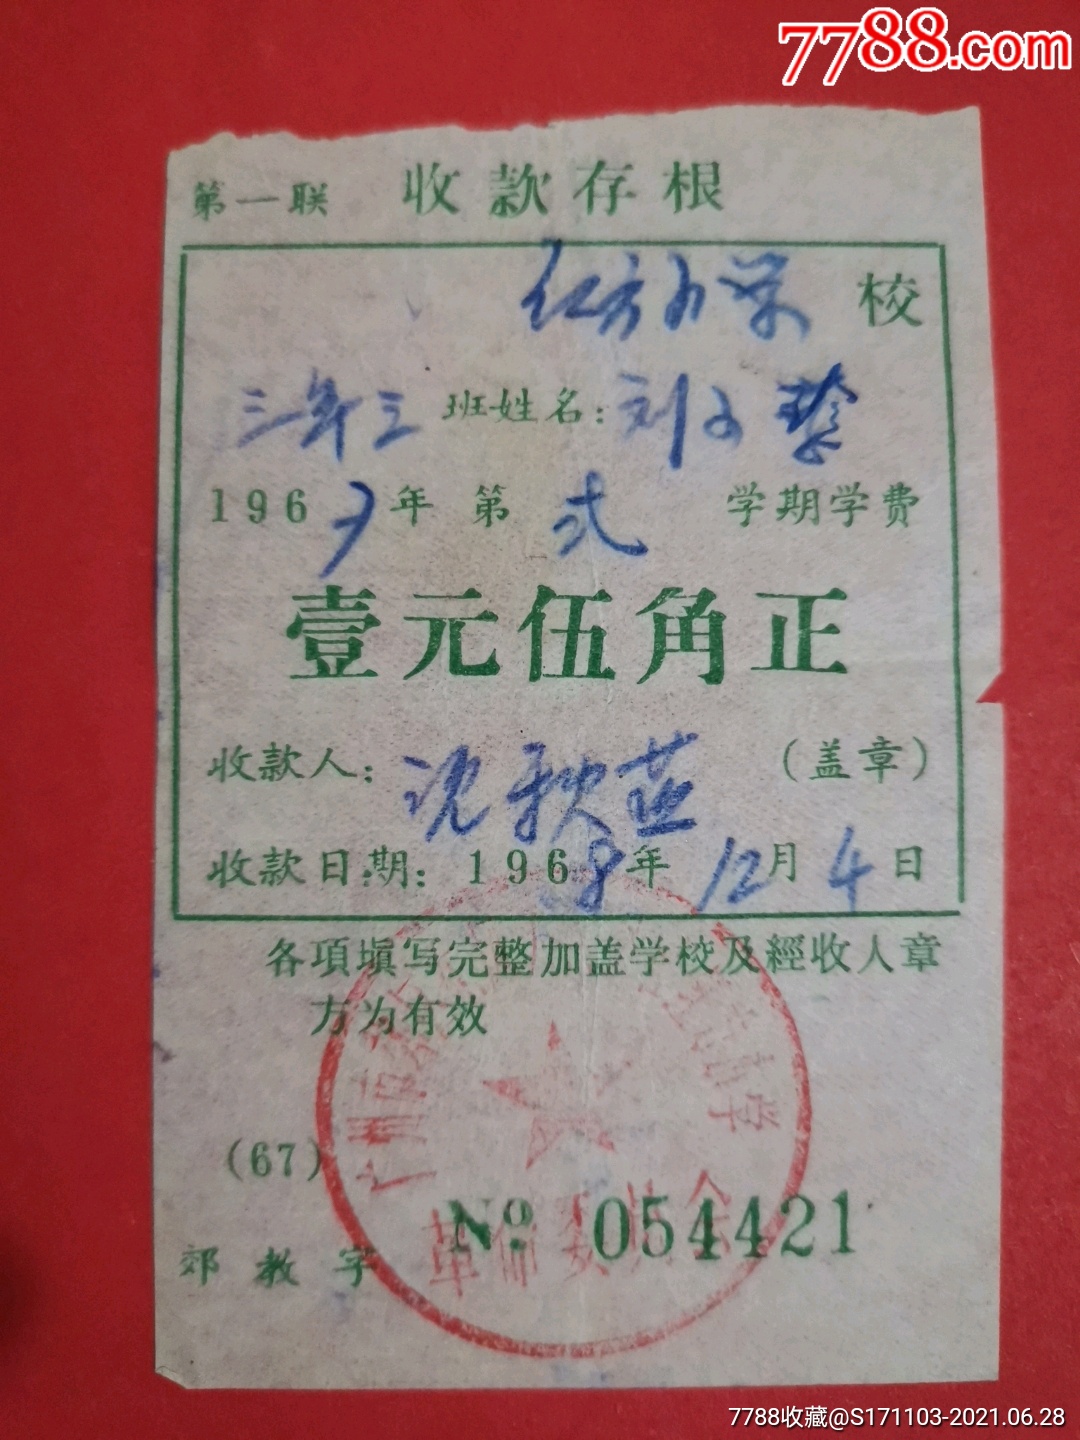 7788.com
第一联 收款存根
小学 校
三年三 班姓名: 刘
1967年 第 弍 学期学费
壹元伍角正
收款人: 沈秋燕 (盖章)
收款日期: 1968年 12月 4日
各項填写完整加盖学校及經收人章
方为有效
广州市 小学
革命委员会
(67)
郊教字 № 054421
7788收藏@S171103-2021.06.28